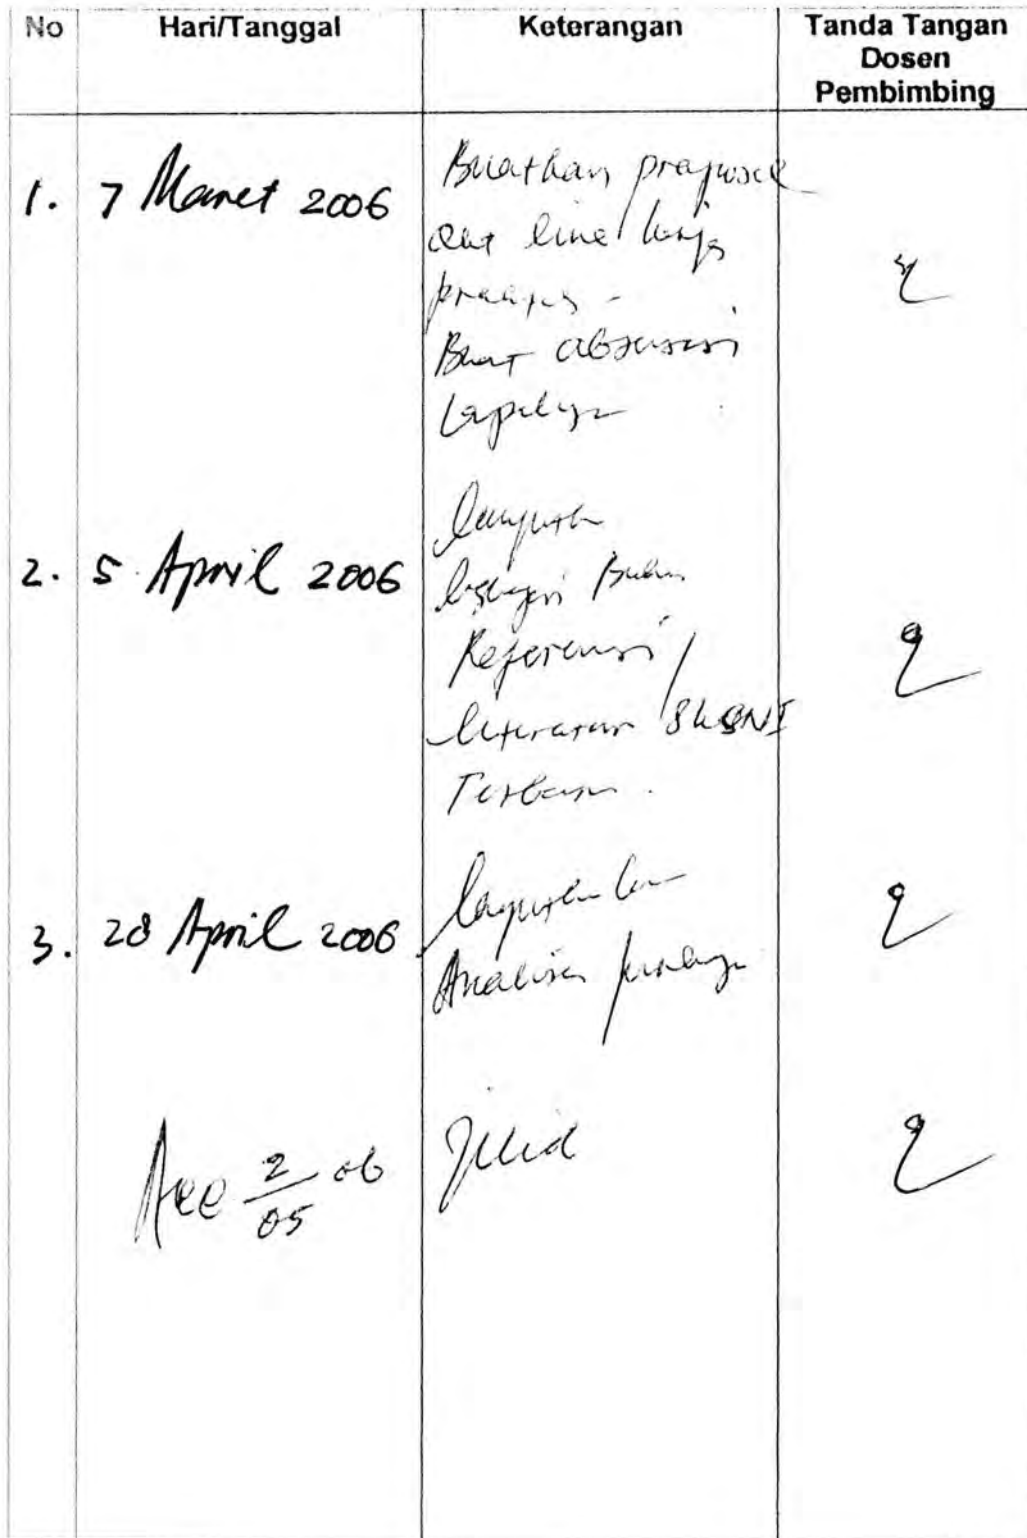 No Hari/Tanggal Keterangan Tanda Tangan
Dosen
Pembimbing
1. 7 Maret 2006 Buatkan proposal
out line kerja
praktek -
Buat absensi
lapangan
2. 5 April 2006
Buku
Referensi /
literatur SNI
Terbaru.
3. 28 April 2006 lanjutkan
Analisa
Acc 2/05 06 Jilid